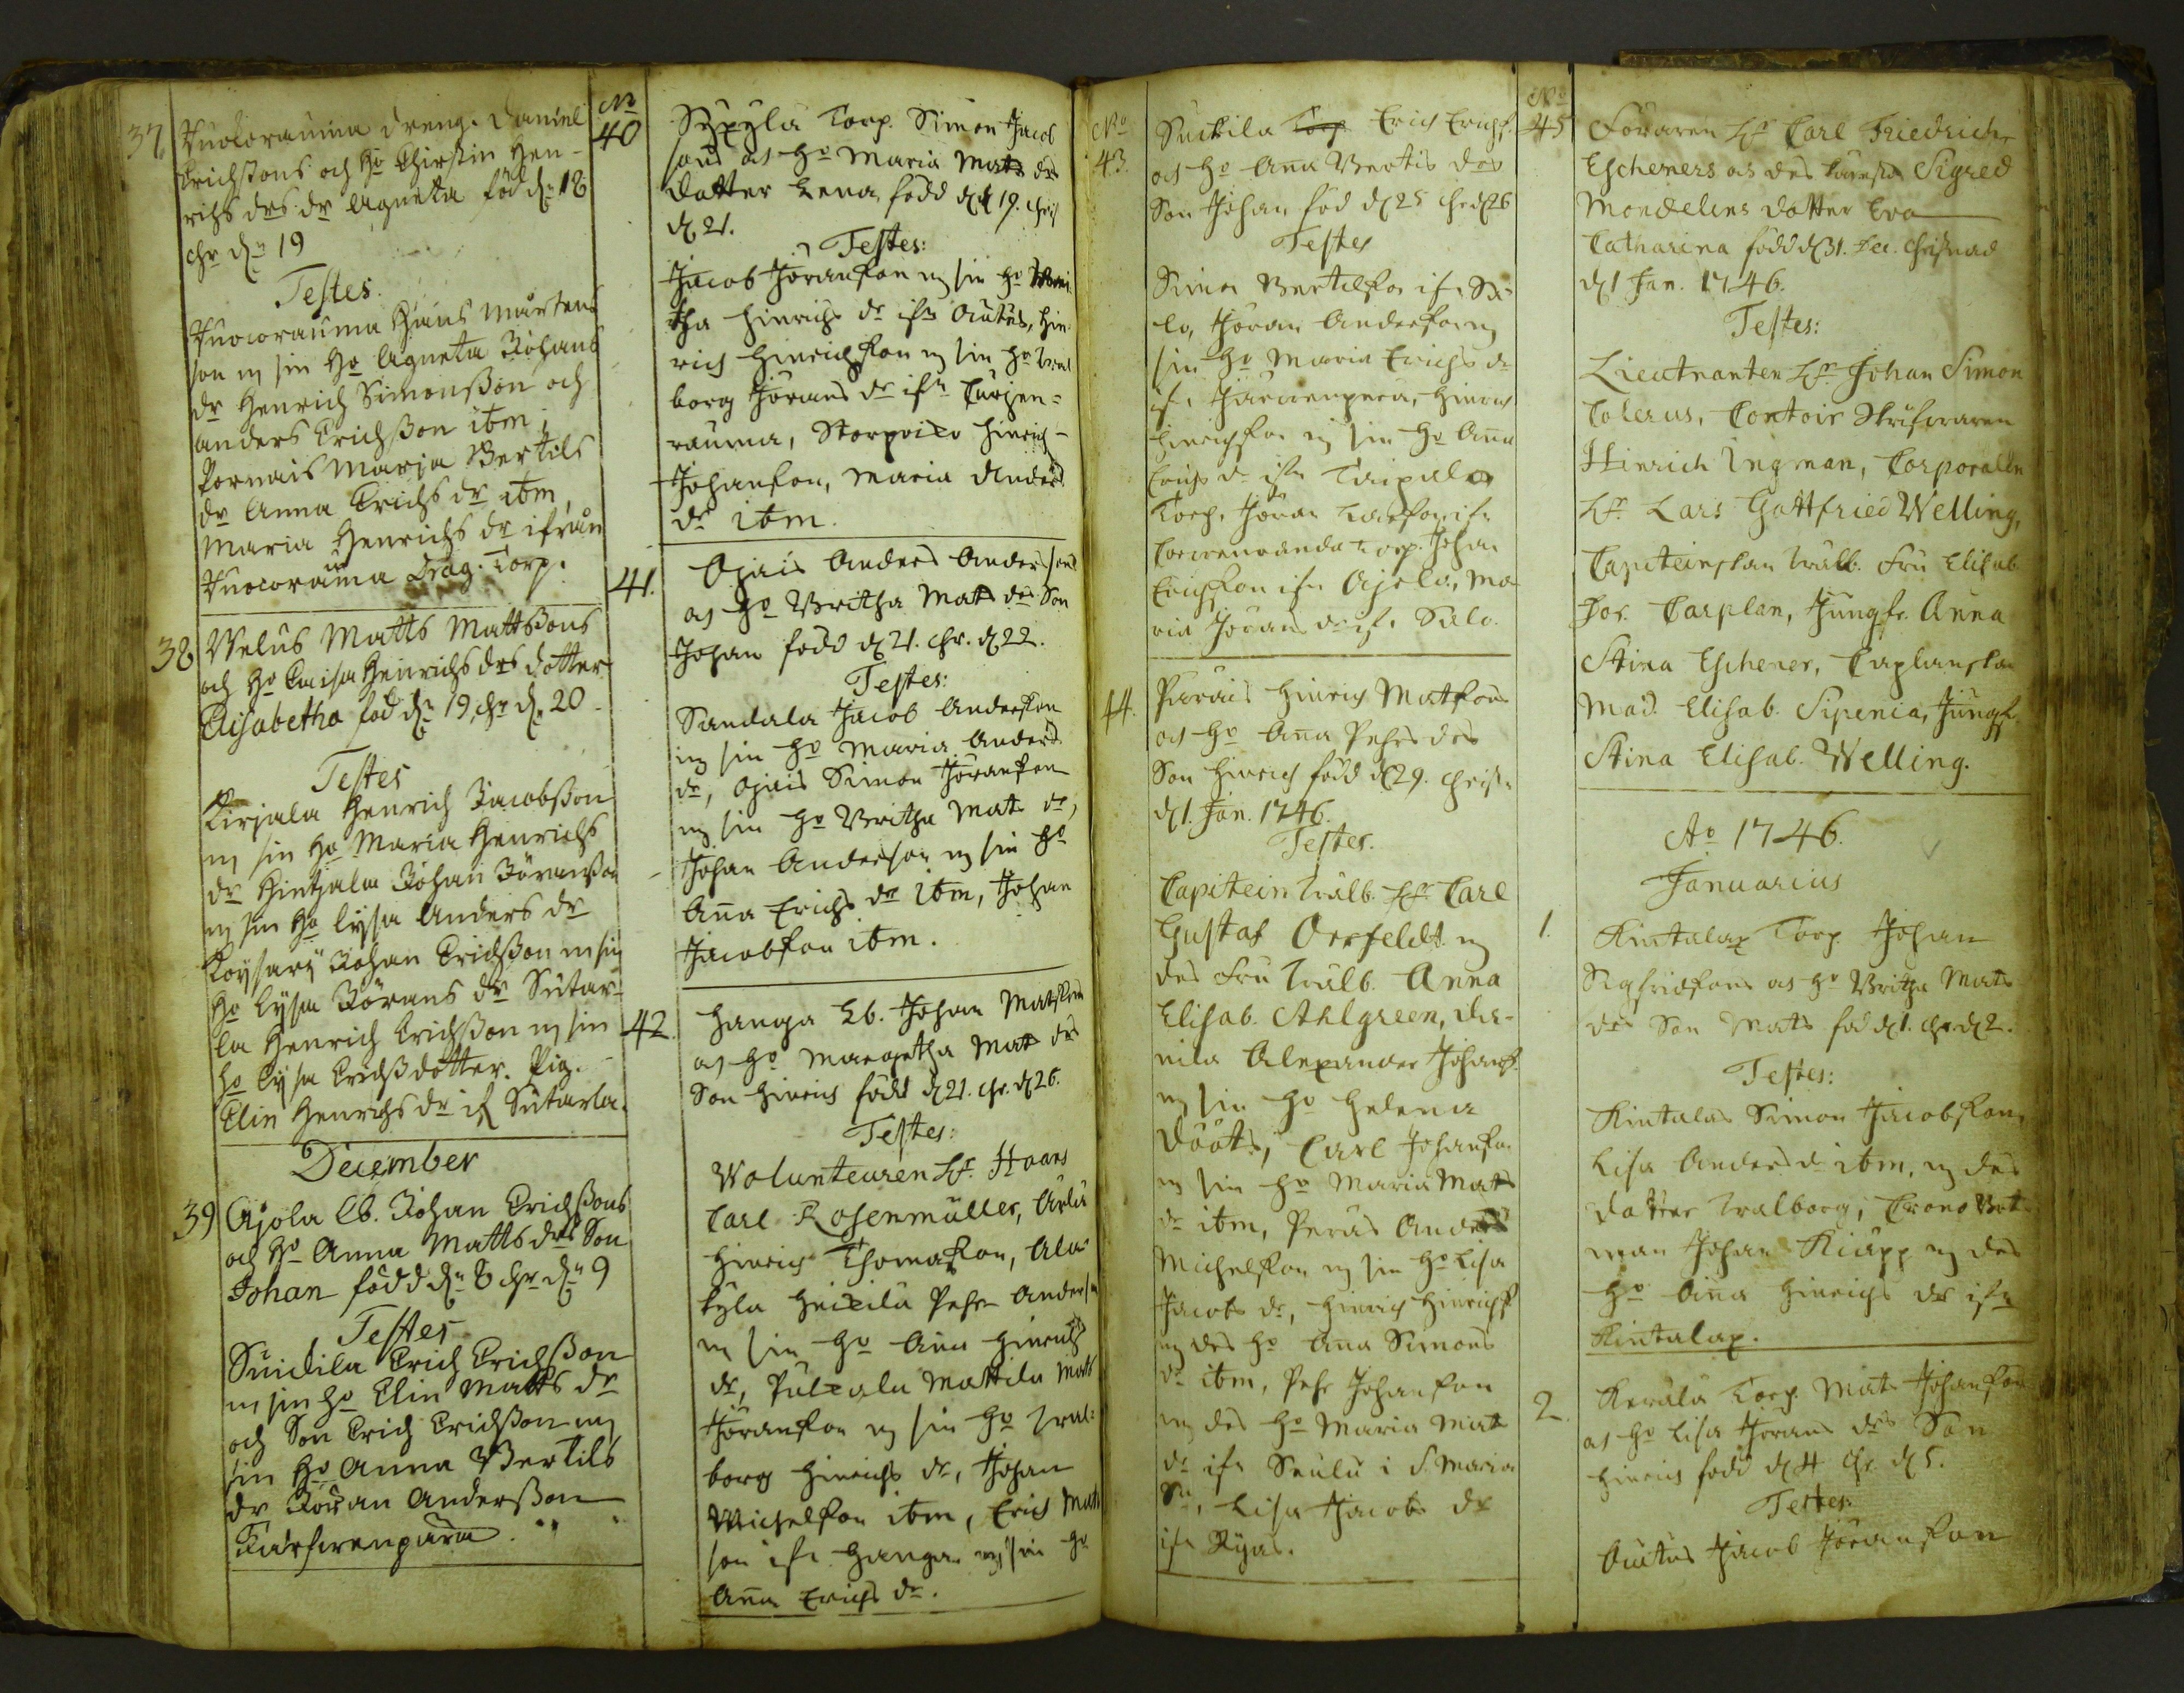 37. Kuolorauma dreng. Daniel
Erichssons och Ho Chirstin Hen-
richs drs dr Agneta föd dn 18
chr dn 19
Testes.
Kuocorauma Hans Mårtens
son m sin Ho Agneta Johans
dr Henrich Simonsson och
Anders Erichsson ibm,
Pornais Maria Bertils
dr Anna Erichs dr ibm,
Maria Henrichs dr ifrån
Kuocorauma Drag. Torp.
38 Matts Mattssons
och Ho Caisa Henrichs drs dotter
Elisabetha föd dn 19, chr dn 20.
Testes
Kirjala Henrich Jacobsson
m sin Ho Maria Henrichs
dr Hintjala Johan Göransson
m sin Ho Lysa Anders dr
Johan Erichsson m sin
Ho Lysa Görans dr Sutar-
la Henrich Erichsson m sin
Ho Lysa Erichsdotter. Pig.
Elin Henrichs dr if Sutarla.
December
39 Ajola Johan Erichssons
och Ho Anna Matts drs Son
Johan född dn 8 chr dn 9
Testes
Suickila Erich Erichsson
m sin Ho Elin Matts dr
och Son Erich Erichsson m
sin Ho Anna Bertils
dr Göran Andersson
No
40 Torp. Simon Jacob
sons och Ho Maria Mats drs
datter Lena, född d. 19. chris
d. 21.
Testes:
Jacob Jöransson m sin Ho
tha Hinrichs dr ifn Autus, Hin
rich Hinrichsson m sin Ho Wal
borg Jörans dr ifn
rauma, Hinrich
Johansson, Maria Anders
dr ibm.
41. Ojais Anders Anderssons
och Ho Britha Mats drs Son
Johan född d. 21. chr. d. 22.
Testes:
Sandala Jacob Andersson
m sin Ho Maria Anders
dr, Ojais Simon Jöransson
m sin Ho Britha Mats dr,
Johan Andersson m sin Ho
Anna Erichs dr ibm, Johan
Jacobsson ibm.
42. Hanga Johan Matssons
och Ho Margetha Mats drs
Son Hinrich född d. 21. chr. d. 26.
Testes:
Volunteuren Hr. Hans
Carl Rosenmüller,
Hinrich Thomasson, Ala-
kyla Heikilä Pehr Andersson
m sin Ho Anna Hinrichs
dr, Mattila Mats
Jöransson m sin Ho Wal-
borg Hinrichs dr, Johan
Michelsson ibm, Erich Mats
son ifn Hanga m sin Ho
Anna Erichs dr.
No
43. Suikila Erich Erichss.
och Ho Anna Bertils drs
Son Johan föd d. 25 chr d. 26
Testes
Simon Bertilsson ifn Sa-
lo, Jöran Andersson m
sin Ho Maria Erichs dr
ifn Järvenpera, Hinrich
Hinrichsson m sin Ho Anna
Erichs dr ifn Taipale
Torp. Jöran Larsson ifn
Torp. Johan
Erichsson ifn Ajola, Ma
ria Jörans dr ifn Salo.
44. Hinrich Matssons
och Ho Anna Pehrs drs
Son Hinrich född d. 29. christn
d. 1. Jan. 1746.
Testes.
Capitein Wälb. Hr Carl
Gustaf Orrfeldt m
des Fru Wälb. Anna
Elisab. Ahlgreen,
Alexander Johanss.
m sin Ho Helena
Carl Johansson
m sin Ho Maria Mats
dr ibm, Anders
Michelsson m sin Ho Lisa
Jacobs dr, Hinrich Hinrichss.
m des Ho Anna Simons
dr ibm, Pehr Johansson
m des Ho Maria Mats
dr ifn i S. Maria
Sn, Lisa Jacobs dr
ifn
No
45 Föraren Hr Carl Friedrich
Escheners och des Sigred
Mondelins dotter Eva
Catharina född d 31. Dec. Christnad
d 1 Jan. 1746.
Testes:
Lieutnanten Hr Johan Simon
Colerus, Contoir Skrifwaren
Hinrich Ingman, Corporalen
Hr Lars Gottfried Welling,
Capiteinskan Wälb. Fru Elisab.
Carplan, Jungfr. Anna
Stina Eschener, Caplanskan
Mad. Elisab. Sipenia, Jungf.
Stina Elisab. Welling.
Ao 1746.
Januarius
1. Kintalax Torp. Johan
Sigfridsons och Ho Britha Mats
drs Son Mats föd d. 1. chr. d. 2.
Testes:
Kintalax Simon Jacobsson,
Lisa Anders dr ibm, m des
datter Walborg, Crono Båt
man Johan Kiäpp m des
Ho Anna Hinrichs dr ifn
Kintalax.
2. Kerala Torp. Mats Johansson
och Ho Lisa Jörans drs Son
Hinrich född d. 4 chr. d. 5.
Testes:
Autus Jacob Jöransson